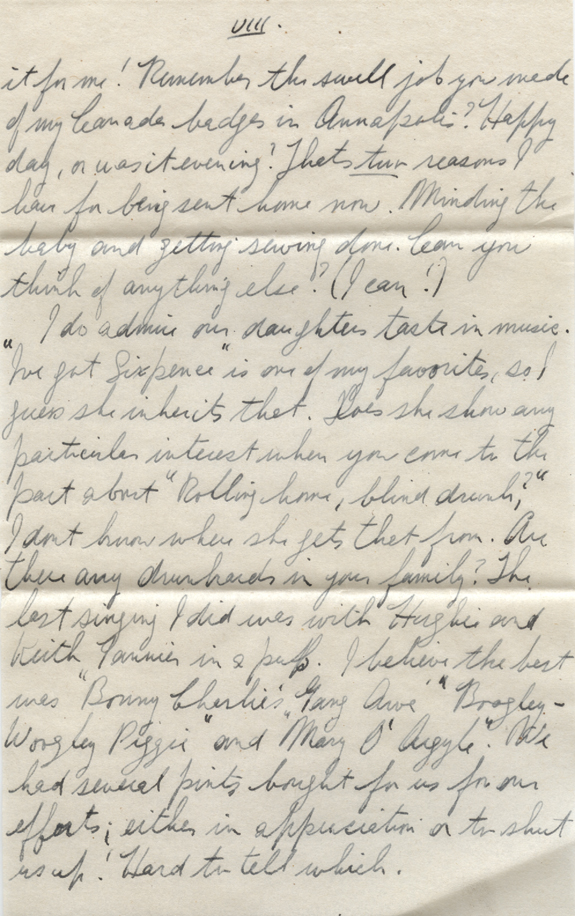 VIII.
it for me! Remember the swell job you made
of my Canada badges in Annapolis? Happy
day, or was it evening? Thats two reasons I
have for being sent home now. Minding the
baby and getting sewing done. Can you
think of anything else? (I can!)
I do admire our daughters taste in music.
"I've got Sixpence" is one of my favorites, so I
guess she inherits that. Does she show any
particular interest when you come to the
part about "Rolling home, blind drunk?"
I dont know where she gets that from. Are
there any drunkards in your family? The
last singing I did was with Hughie and
Keith in a pub. I believe the best
was "Bonny Charlie's Gang Awa'" "Boogley-
Woogley Piggie" and "Mary O' Argyle". We
had several pints bought for us for our
efforts; either in appreciation or to shut
us up! Hard to tell which.